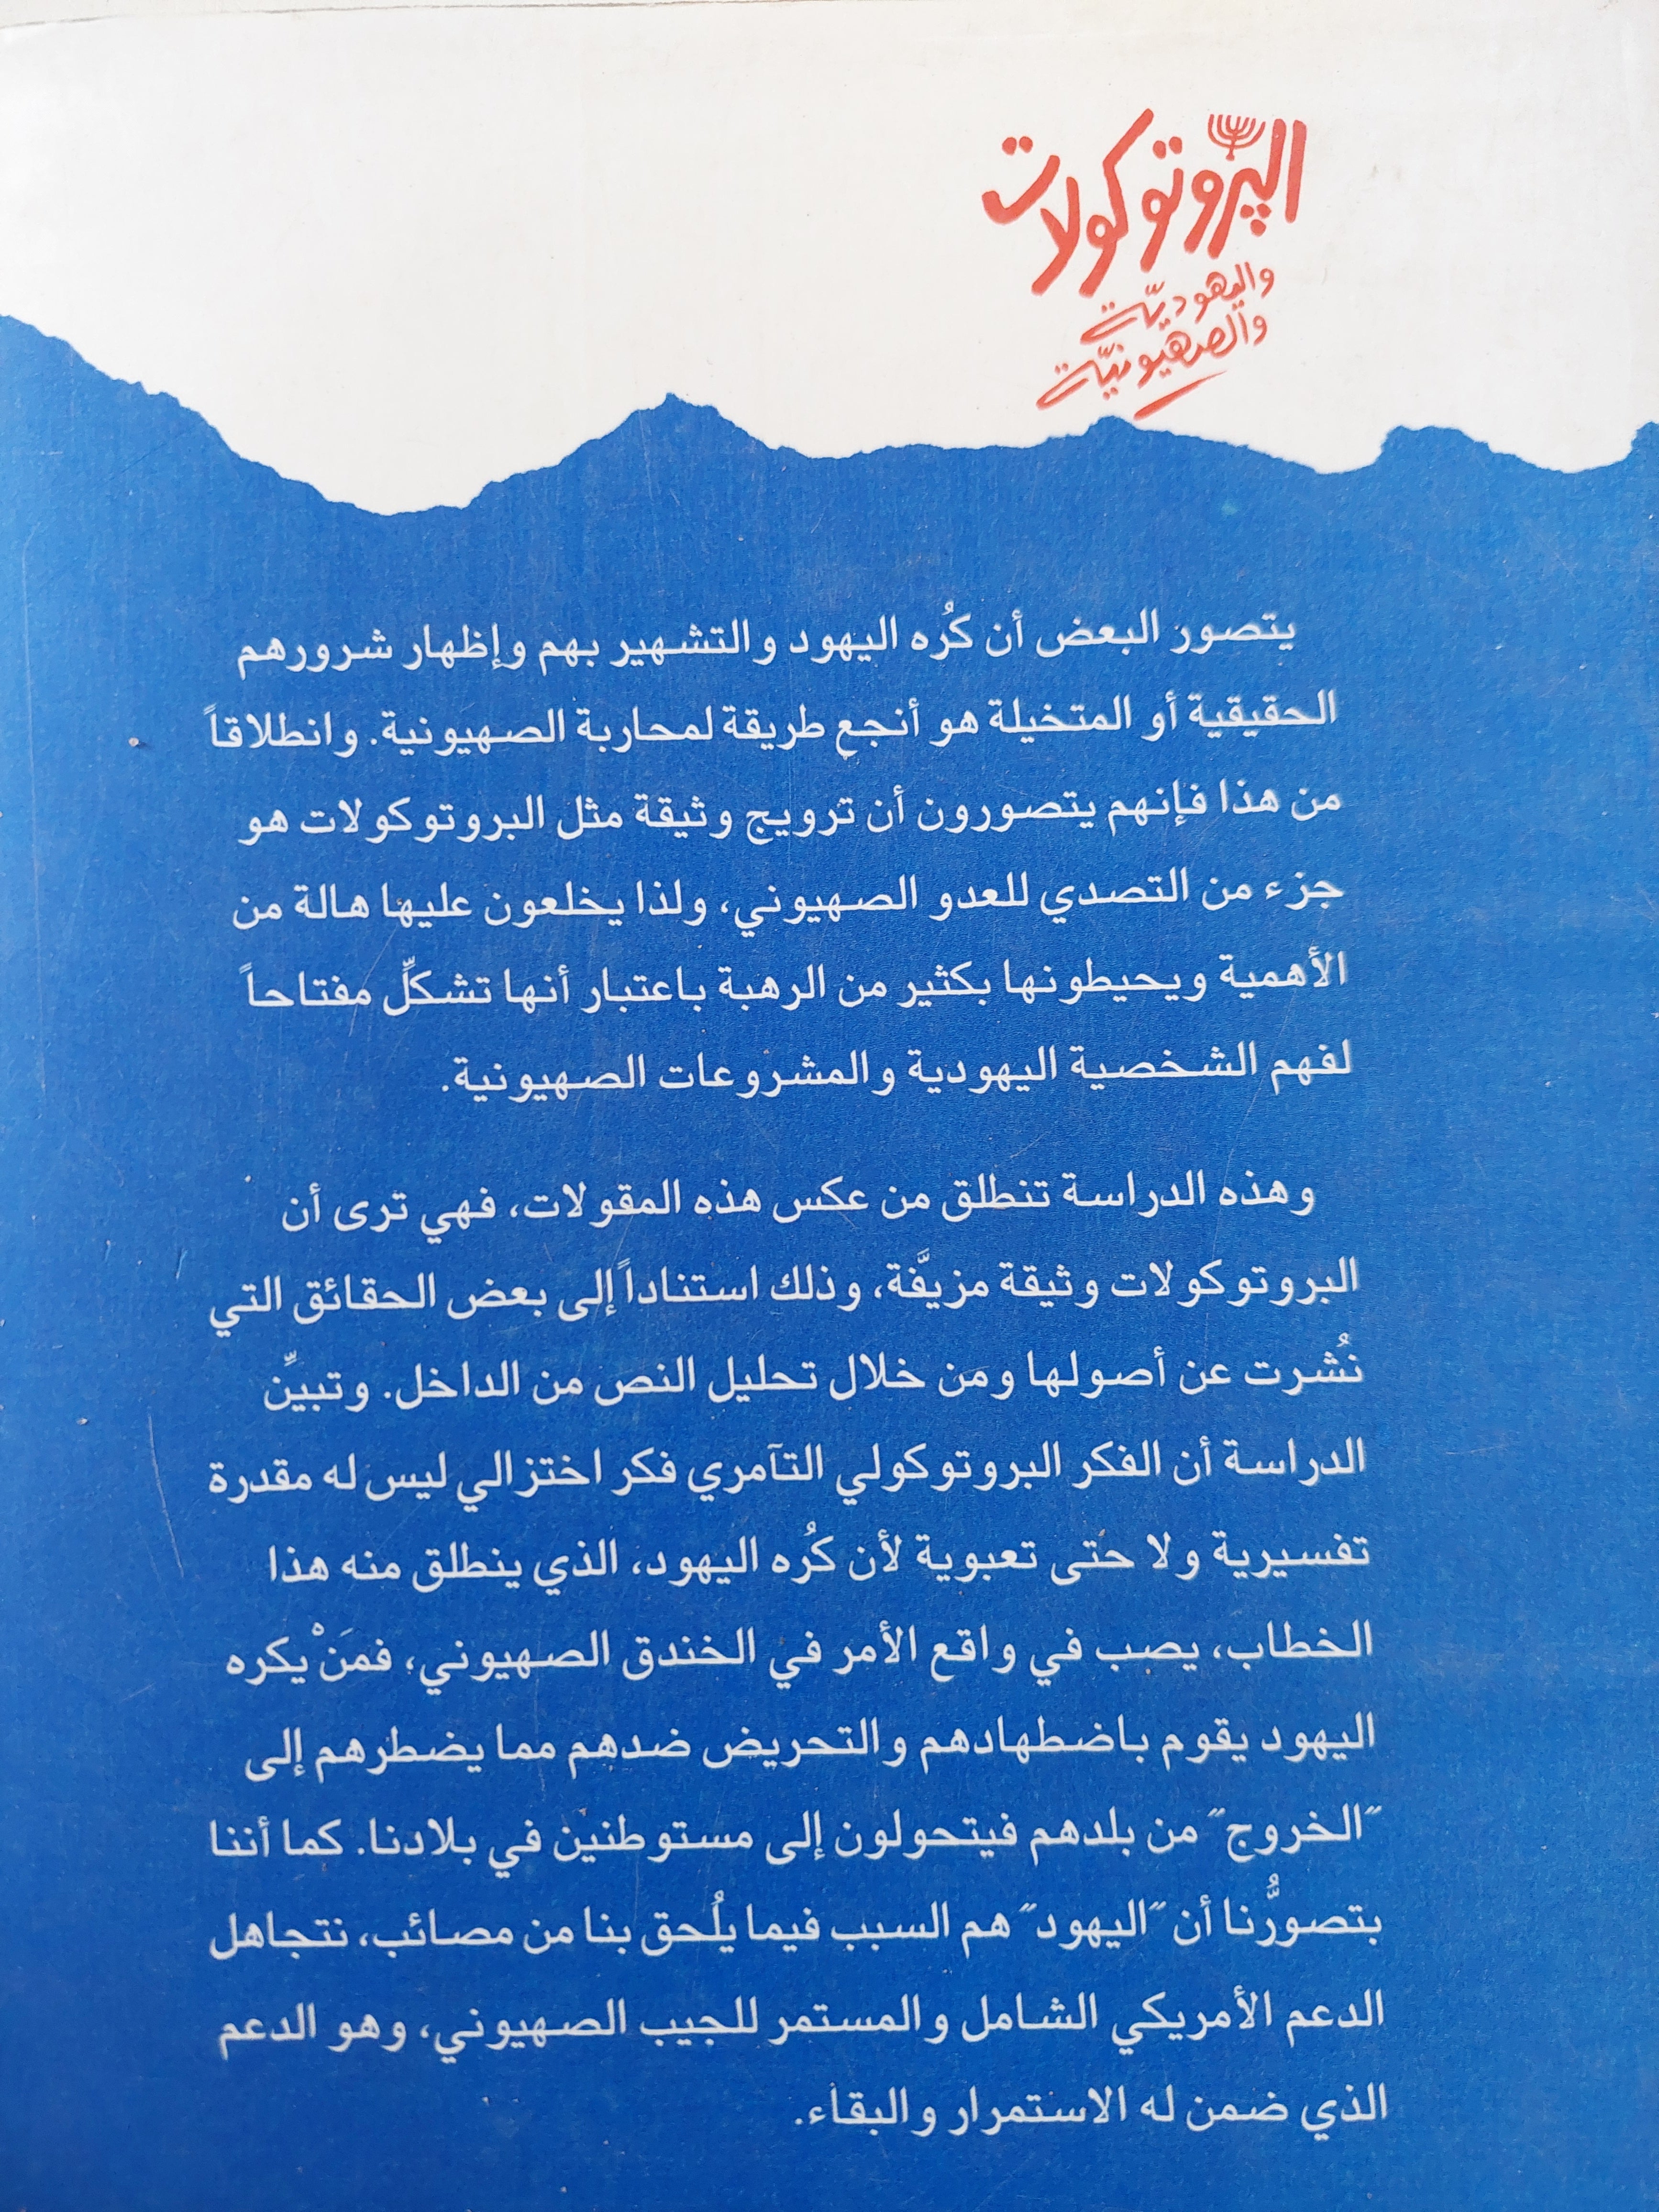 البروتوكولات
واليهوديّة
والصهيونيّة
يتصور البعض أن كُره اليهود والتشهير بهم وإظهار شرورهم
الحقيقية أو المتخيلة هو أنجع طريقة لمحاربة الصهيونية. وانطلاقاً
من هذا فإنهم يتصورون أن ترويج وثيقة مثل البروتوكولات هو
جزء من التصدي للعدو الصهيوني، ولذا يخلعون عليها هالة من
الأهمية ويحيطونها بكثير من الرهبة باعتبار أنها تشكِّل مفتاحاً
لفهم الشخصية اليهودية والمشروعات الصهيونية.
وهذه الدراسة تنطلق من عكس هذه المقولات، فهي ترى أن
البروتوكولات وثيقة مزيَّفة، وذلك استناداً إلى بعض الحقائق التي
نُشرت عن أصولها ومن خلال تحليل النص من الداخل. وتبيِّن
الدراسة أن الفكر البروتوكولي التآمري فكر اختزالي ليس له مقدرة
تفسيرية ولا حتى تعبوية لأن كُره اليهود، الذي ينطلق منه هذا
الخطاب، يصب في واقع الأمر في الخندق الصهيوني، فمَنْ يكره
اليهود يقوم باضطهادهم والتحريض ضدهم مما يضطرهم إلى
"الخروج" من بلدهم فيتحولون إلى مستوطنين في بلادنا. كما أننا
بتصورُّنا أن "اليهود" هم السبب فيما يلُحق بنا من مصائب، نتجاهل
الدعم الأمريكي الشامل والمستمر للجيب الصهيوني، وهو الدعم
الذي ضمن له الاستمرار والبقاء.